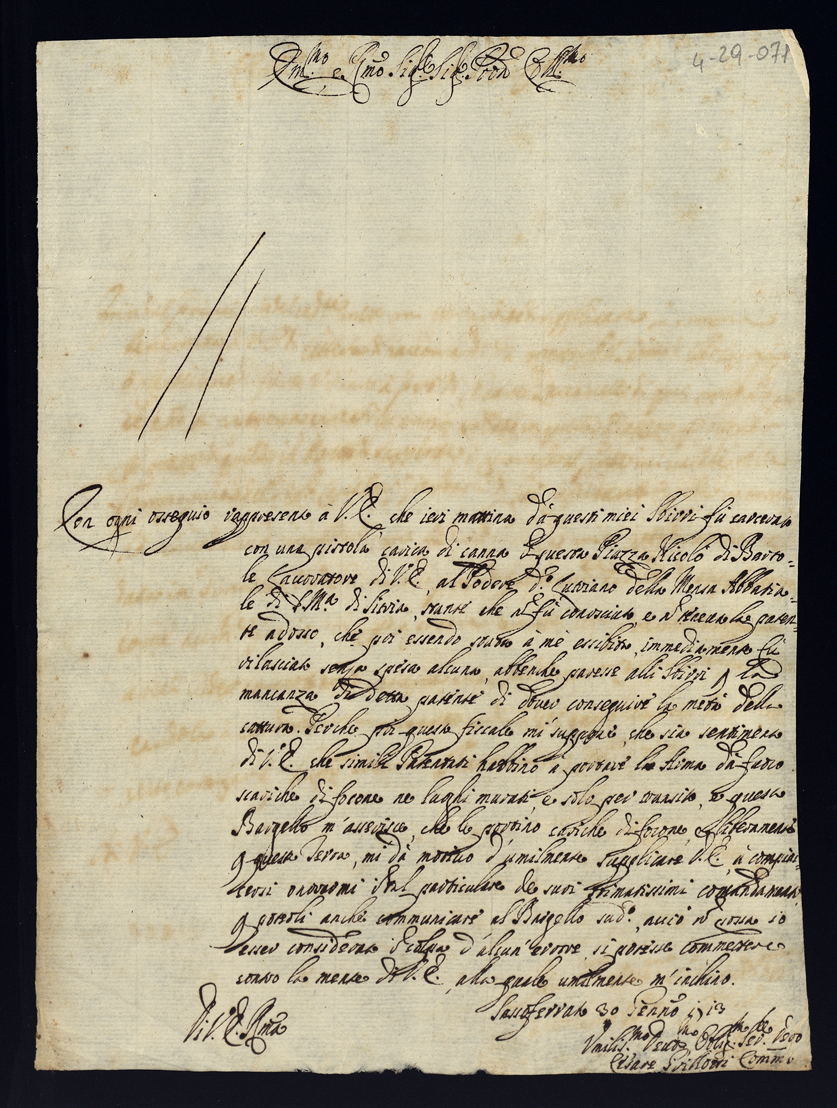 4-29-071
Em.mo e R.mo Sig.r Sig.r Pron Coll.mo
Con ogni ossequio rappresento à V.E. che ieri mattina dà questi miei Sbirri fù carcerato
con una pistola carica di canna questa Piazza Nicolò di Barto=
le Lavoratore di V.E. al Podere d.o della Mensa Abbatia=
le di S.Ma. di Sitria, stante che ñ fù conosciuto, e ñ teneva la paten=
te adosso, che poi essendo stata à me essibita, immediamente fù
rilasciato senza spesa alcuna, abbenche paresse alli Sbirri p la
mancanza di detta patente di dover conseguire la metà della
cattura. Perche poi questo fiscale mi suppone, che sia sentimento
di V.E. che simili Patentati habbino à portare le Arma dà fuoco
scariche di focone ne luoghi murati, e solo per transito, e questo
Bargello m'asserisce, che le portino cariche di focone, e liberamente
p questa Terra, mi dà motivo d'umilmente supplicare V.E. à compia=
cersi onorarmi nel particulare de suoi stimatissimi comandamenti
p poterli anche communicare al Bargello sud.o, acciò ñ possa io
esser considerato d'alcun'errore, si potesse commettere
contro la mente di V.E., alla quale umilmente m'inchino.
Sassoferrato 30 Genn.o 1713
Di V.E. R.ma
Umiliss.mo Devot.mo Oblig.mo Ser.re Vero
Cesare Comm.o